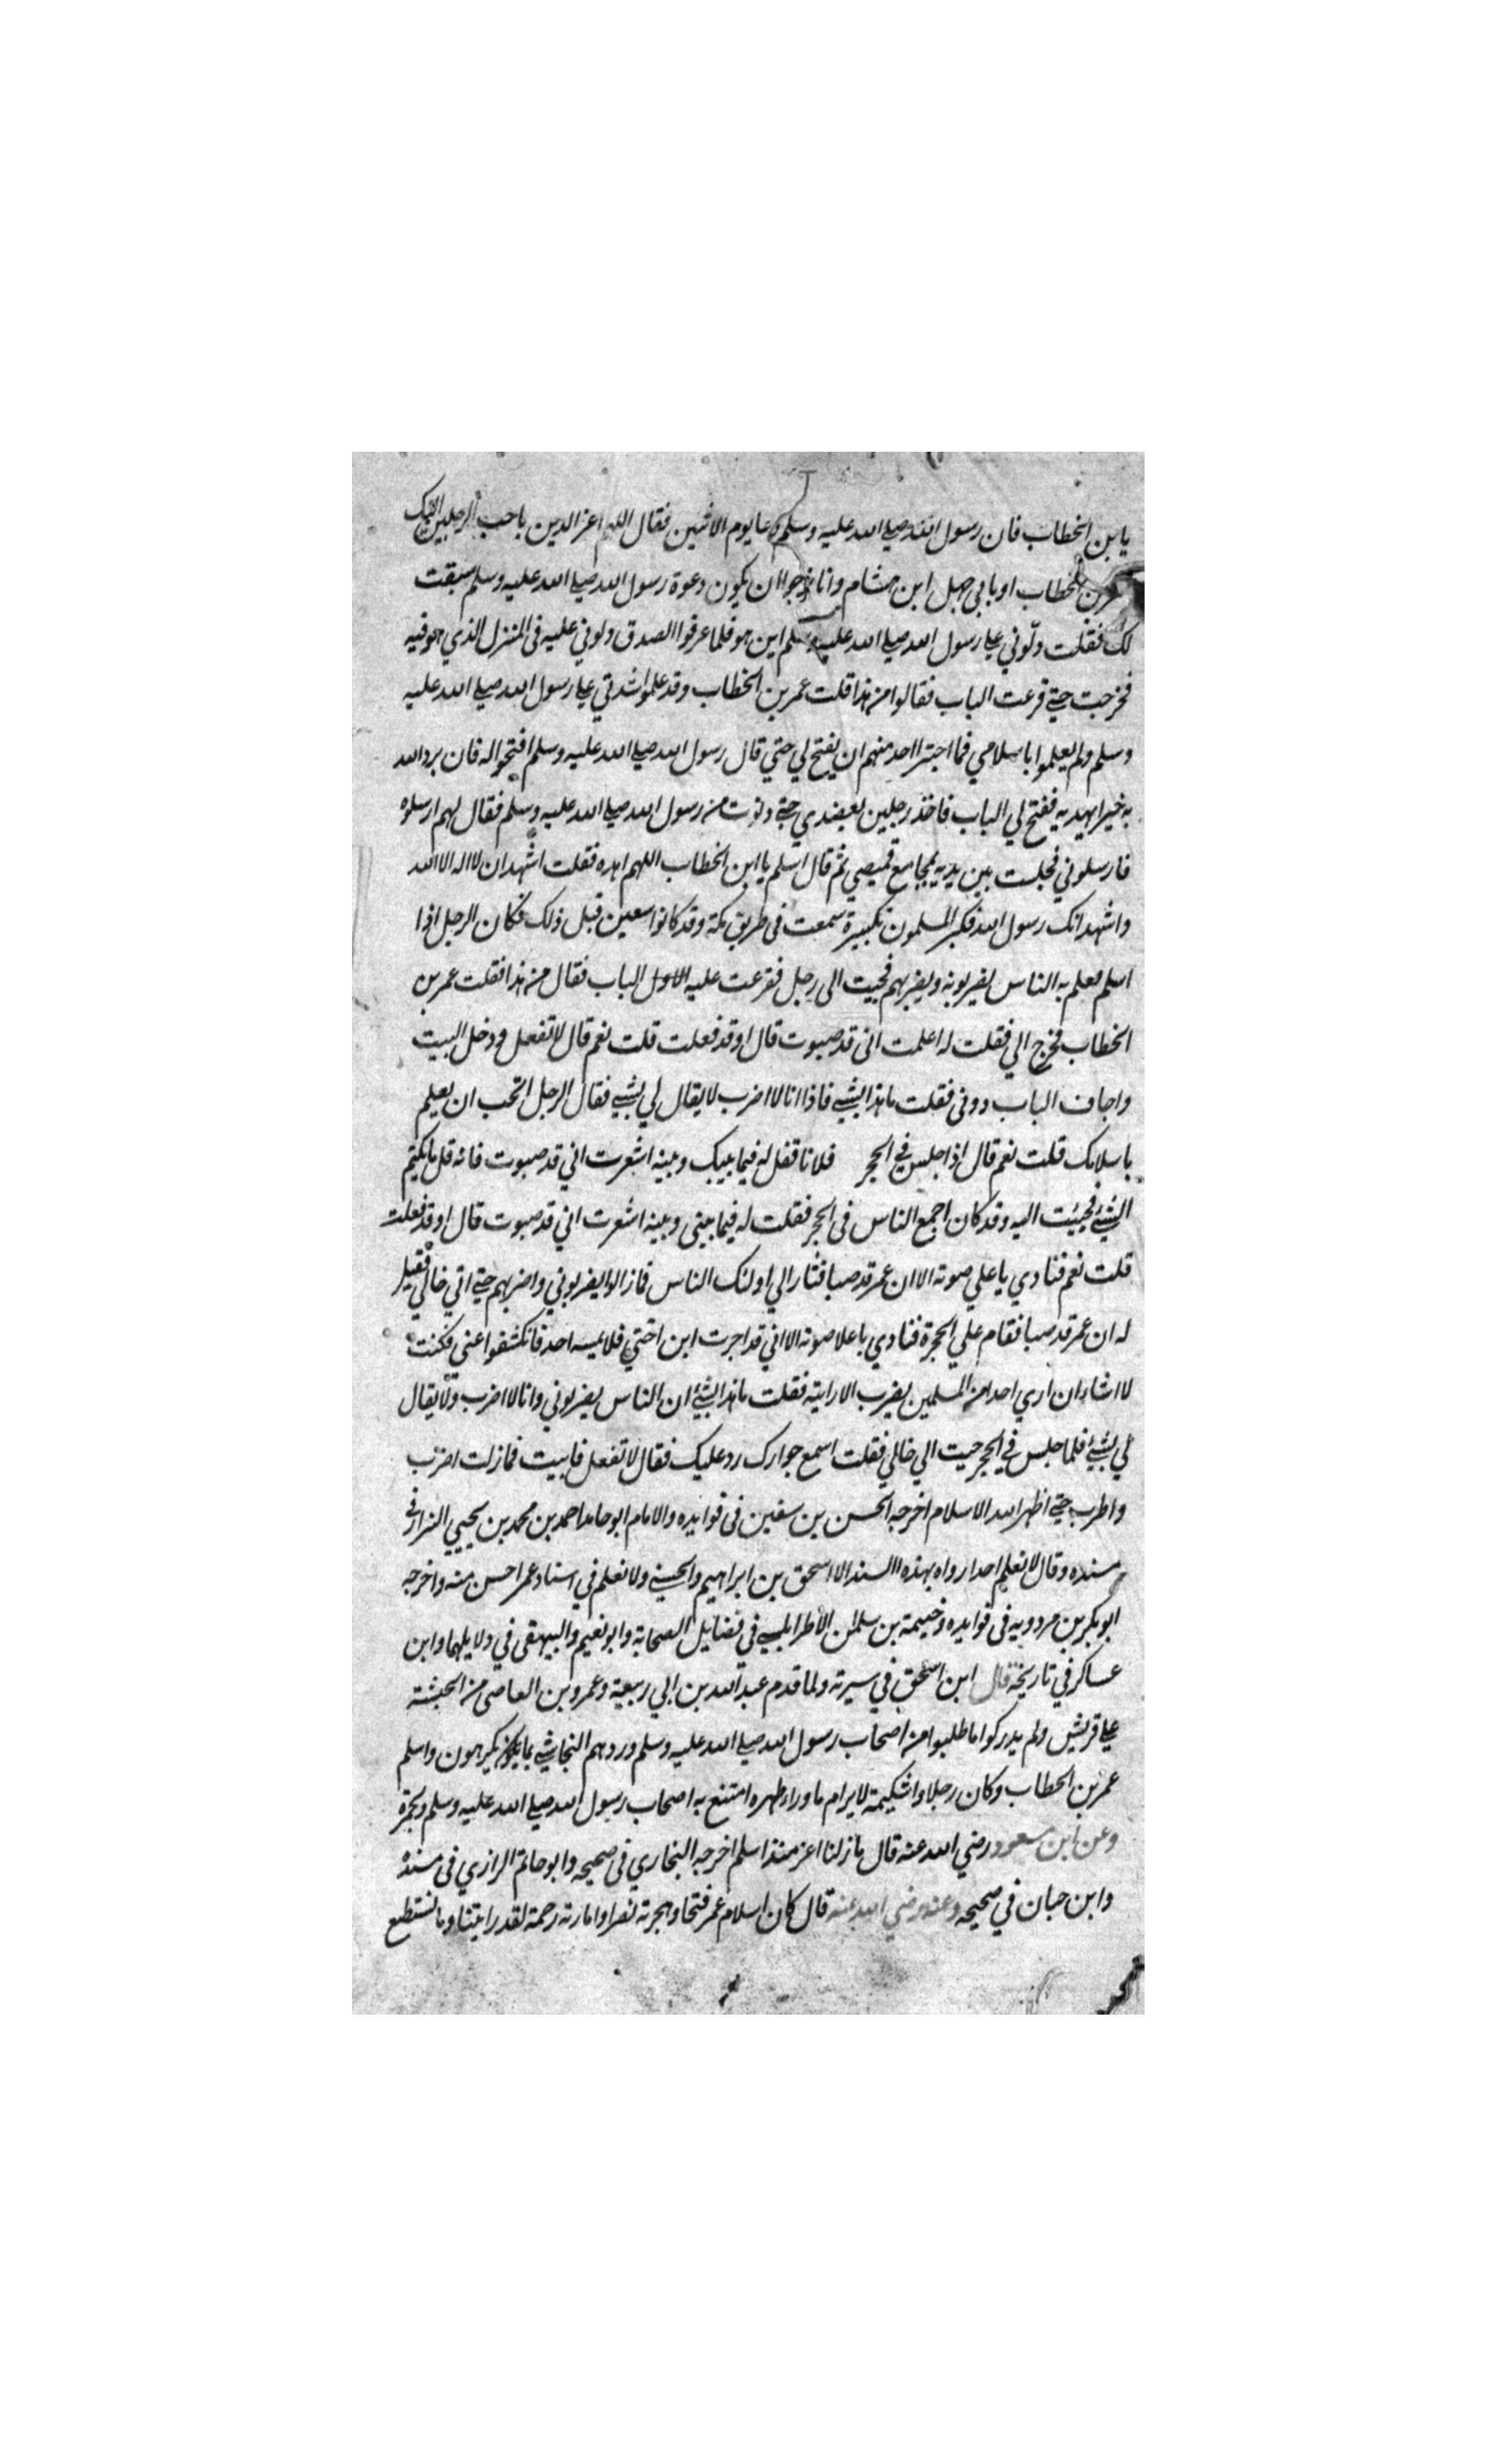 يا بن الخطاب فان رسول الله صلي الله عليه وسلم دعا يوم الاثنين فقال اللهم اعز الدين باحب الرجلين اليك
عمر بن الخطاب او بابي جهل ابن هشام وانا نرجوا ان يكون دعوة رسول الله صلي الله عليه وسلم سبقت
لك فقلت دلوني علي رسول الله صلي الله عليه وسلم اين هو فلما عرفوا الصدق دلوني عليه في المنزل الذي هو فيه
فخرجت حتي قرعت الباب فقالوا من هذا قلت عمر بن الخطاب وقد علموا شدتي علي رسول الله صلي الله عليه
وسلم ولم يعلموا باسلامي فما اجترا احد منهم ان يفتح لي حتي قال رسول الله صلي الله عليه وسلم افتحوا له فان يرد الله
به خيرا يهديه ففتح لي الباب فاخذ رجلين بعضدي حتي دنوت من رسول الله صلي الله عليه وسلم فقال لهم ارسلوه
فارسلوني فجلست بين يديه بمجامع قميصي ثم قال اسلم يا ابن الخطاب اللهم اهده فقلت اشهد ان لا اله الا الله
واشهد انك رسول الله فكبر المسلمون تكبيرة سمعت في طريق مكة وقد كانوا سعين قبل ذلك فكان الرجل اذا
اسلم فعلم به الناس يضربونه ويضربهم فجيت الي رجل فقرعت عليه الاول الباب فقال من هذا فقلت عمر بن
الخطاب فخرج الي فقلت له اعلمت اني قد صبوت قال اوقد فعلت قلت نعم قال لا تفعل ودخل البيت
واجاف الباب دوني فقلت ما هذا بشيي فاذا انا لا اضرب لا يقال لي بشيي فقال الرجل اتحب ان يعلم
باسلامك قلت نعم قال اذا جلس في الحجر فلانا فقل له فيما بيبك وبينه اشعرت اني قد صبوت فانه قل ما يكتم
الشيئ فجيئت اليه وقد كان اجمع الناس في الحجر فقلت له فيما بيني وبينه اشعرت اني قد صبوت قال اوقد فعلت
قلت نعم فنادي باعلي صوته الا ان عمر قد صبا فثار الي اولئك الناس فما زالوا يضربوني واضربهم حتي اتي خالي فقيل
له ان عمر قد صبا فقام علي الحجرة فنادي باعلا صوته الا اني قد اجرت ابن اختي فلا يمسه احد فانكشفوا عني فكنت
لا اشاء ان اري احدا من المسلمين يضرب الا رايته فقلت ما هذا بشيئ ان الناس يضربوني وانا لا اضرب ولا يقال
لي بشيئ فلما جلس في الحجر جيت الي خالي فقلت اسمع جوارك رد عليك فقال لا تفعل فابيت فما زلت اضرب
واطرب حتي اظهر الله الاسلام اخرجه الحسن بن سفين في فوايده والامام ابو حامد احمد بن محمد بن يحيي البزار في
مسنده وقال لا نعلم احدا رواه بهذه السند الا اسحق بن ابراهيم والحسيني ولا نعلم في اسناد عمر احسن منه واخرجه
ابو بكر بن مردويه في فوايده وخيمة بن سلمن الاطرابلسي في فضايل الصحابة وابو نعيم والبيهقي في دلايلهما وابن
عساكر في تاريخه قال ابن اسحق في سيرته ولما قدم عبد الله بن ابي ربيعة وعمرو بن العاصي من الحبشة
علي قريش ولم يدركوا ما طلبوا من اصحاب رسول الله صلي الله عليه وسلم وردهم النجاشي بما يكرهون واسلم
عمر بن الخطاب وكان رجلا واشكيمة لا يرام ما وراء ظهره امتنع به اصحاب رسول الله صلي الله عليه وسلم وبحمزة
وعن ابن مسعود رضي الله عنه قال ما زلنا اعز منذ اسلم اخرجه البخاري في صحيحه وابو حاتم الرازي في مسنده
وابن حبان في صحيحه وعنه رضي الله عنه قال كان اسلام عمر فتحا وهجرته نصرا وامارته رحمة لقد رايتنا وما نستطيع